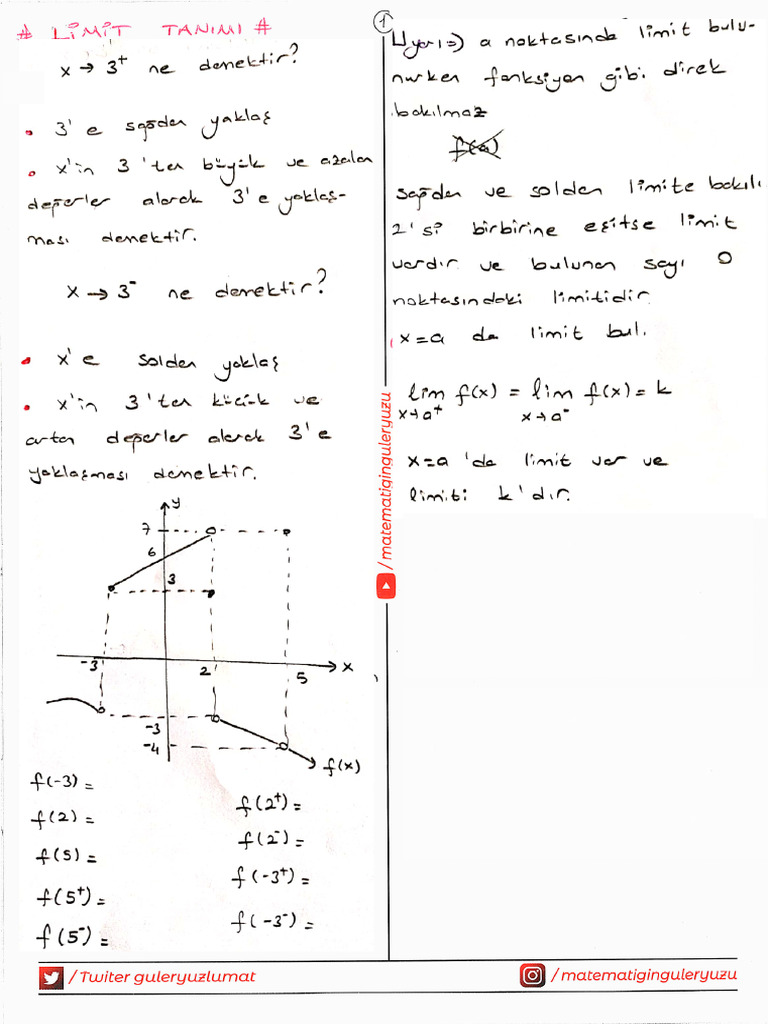 # LİMİT TANIMI #
x → 3⁺ ne demektir?
• 3'e sağdan yaklaş
• x'in 3'ten büyük ve azalan
değerler alarak 3'e yaklaş-
ması demektir.
x → 3⁻ ne demektir?
• x'e soldan yaklaş
• x'in 3'ten küçük ve
artan değerler alarak 3'e
yaklaşması demektir.
y
7
6
3
-3
2
5
x
-3
-4
f(x)
f(-3) =
f(2) =
f(5) =
f(5⁺) =
f(5⁻) =
f(2⁺) =
f(2⁻) =
f(-3⁺) =
f(-3⁻) =
1
Uyarı => a noktasında limit bulu-
nurken fonksiyon gibi direk
bakılmaz
f(a)
sağdan ve soldan limite bakılı
2'si birbirine eşitse limit
vardır ve bulunan sayı O
noktasındaki limitidir.
x=a da limit bul.
lim f(x) = lim f(x) = k
x→a⁺ x→a⁻
x=a 'da limit var ve
limiti k'dır.
/matematiginguleryuzu
/Twiter guleryuzlumat
/matematiginguleryuzu